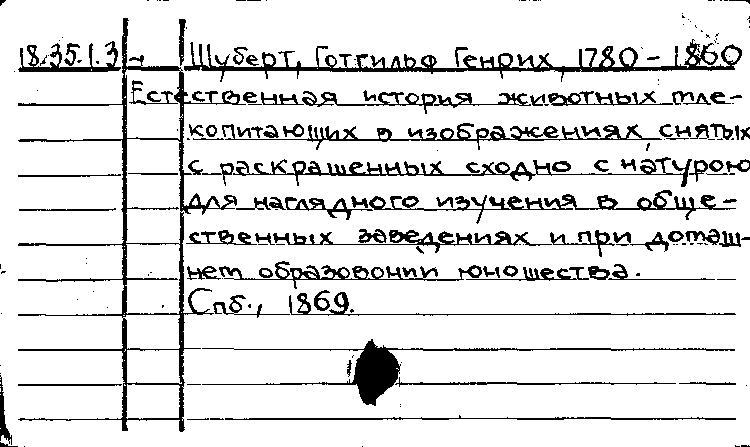 18.35.1.3 ~ Шуберт, Готгильф Генрих, 1780 - 1860
Естественная история животных мле-
копитающих в изображениях, снятых
с раскрашенных сходно с натурою
для наглядного изучения в обще-
ственных заведениях и при домаш-
нем образовании юношества.
Спб., 1869.